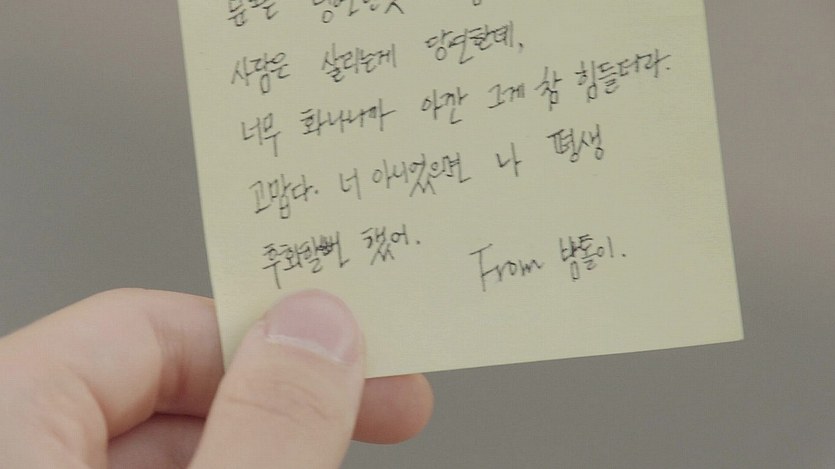 사람은 살리는게 당연한데,
너무 화나니까 아깐 그게 참 힘들더라.
고맙다. 너 아니었으면 나 평생
후회할뻔 했어.
From 밤톨이.